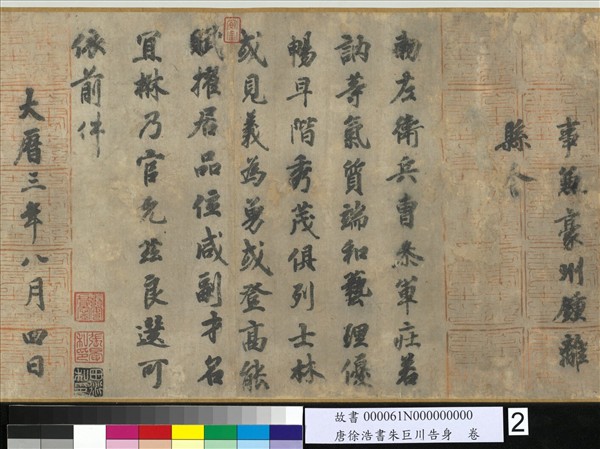 事兼豪州鍾離
縣令
勑左衛兵曹參軍莊若
訥等氣質端和藝理優
暢早階秀茂俱列士林
或見義為勇或登高能
賦擢居品位咸副才名
宜楙乃官允茲良選可
依前件
大曆三年八月四日
故書 000061N000000000
唐徐浩書朱巨川告身 卷
2